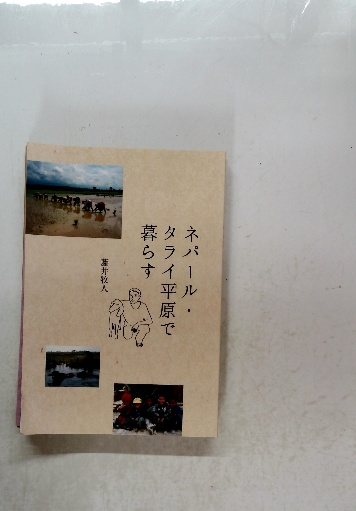 ネパール・
タライ平原で
暮らす
藍井牧人